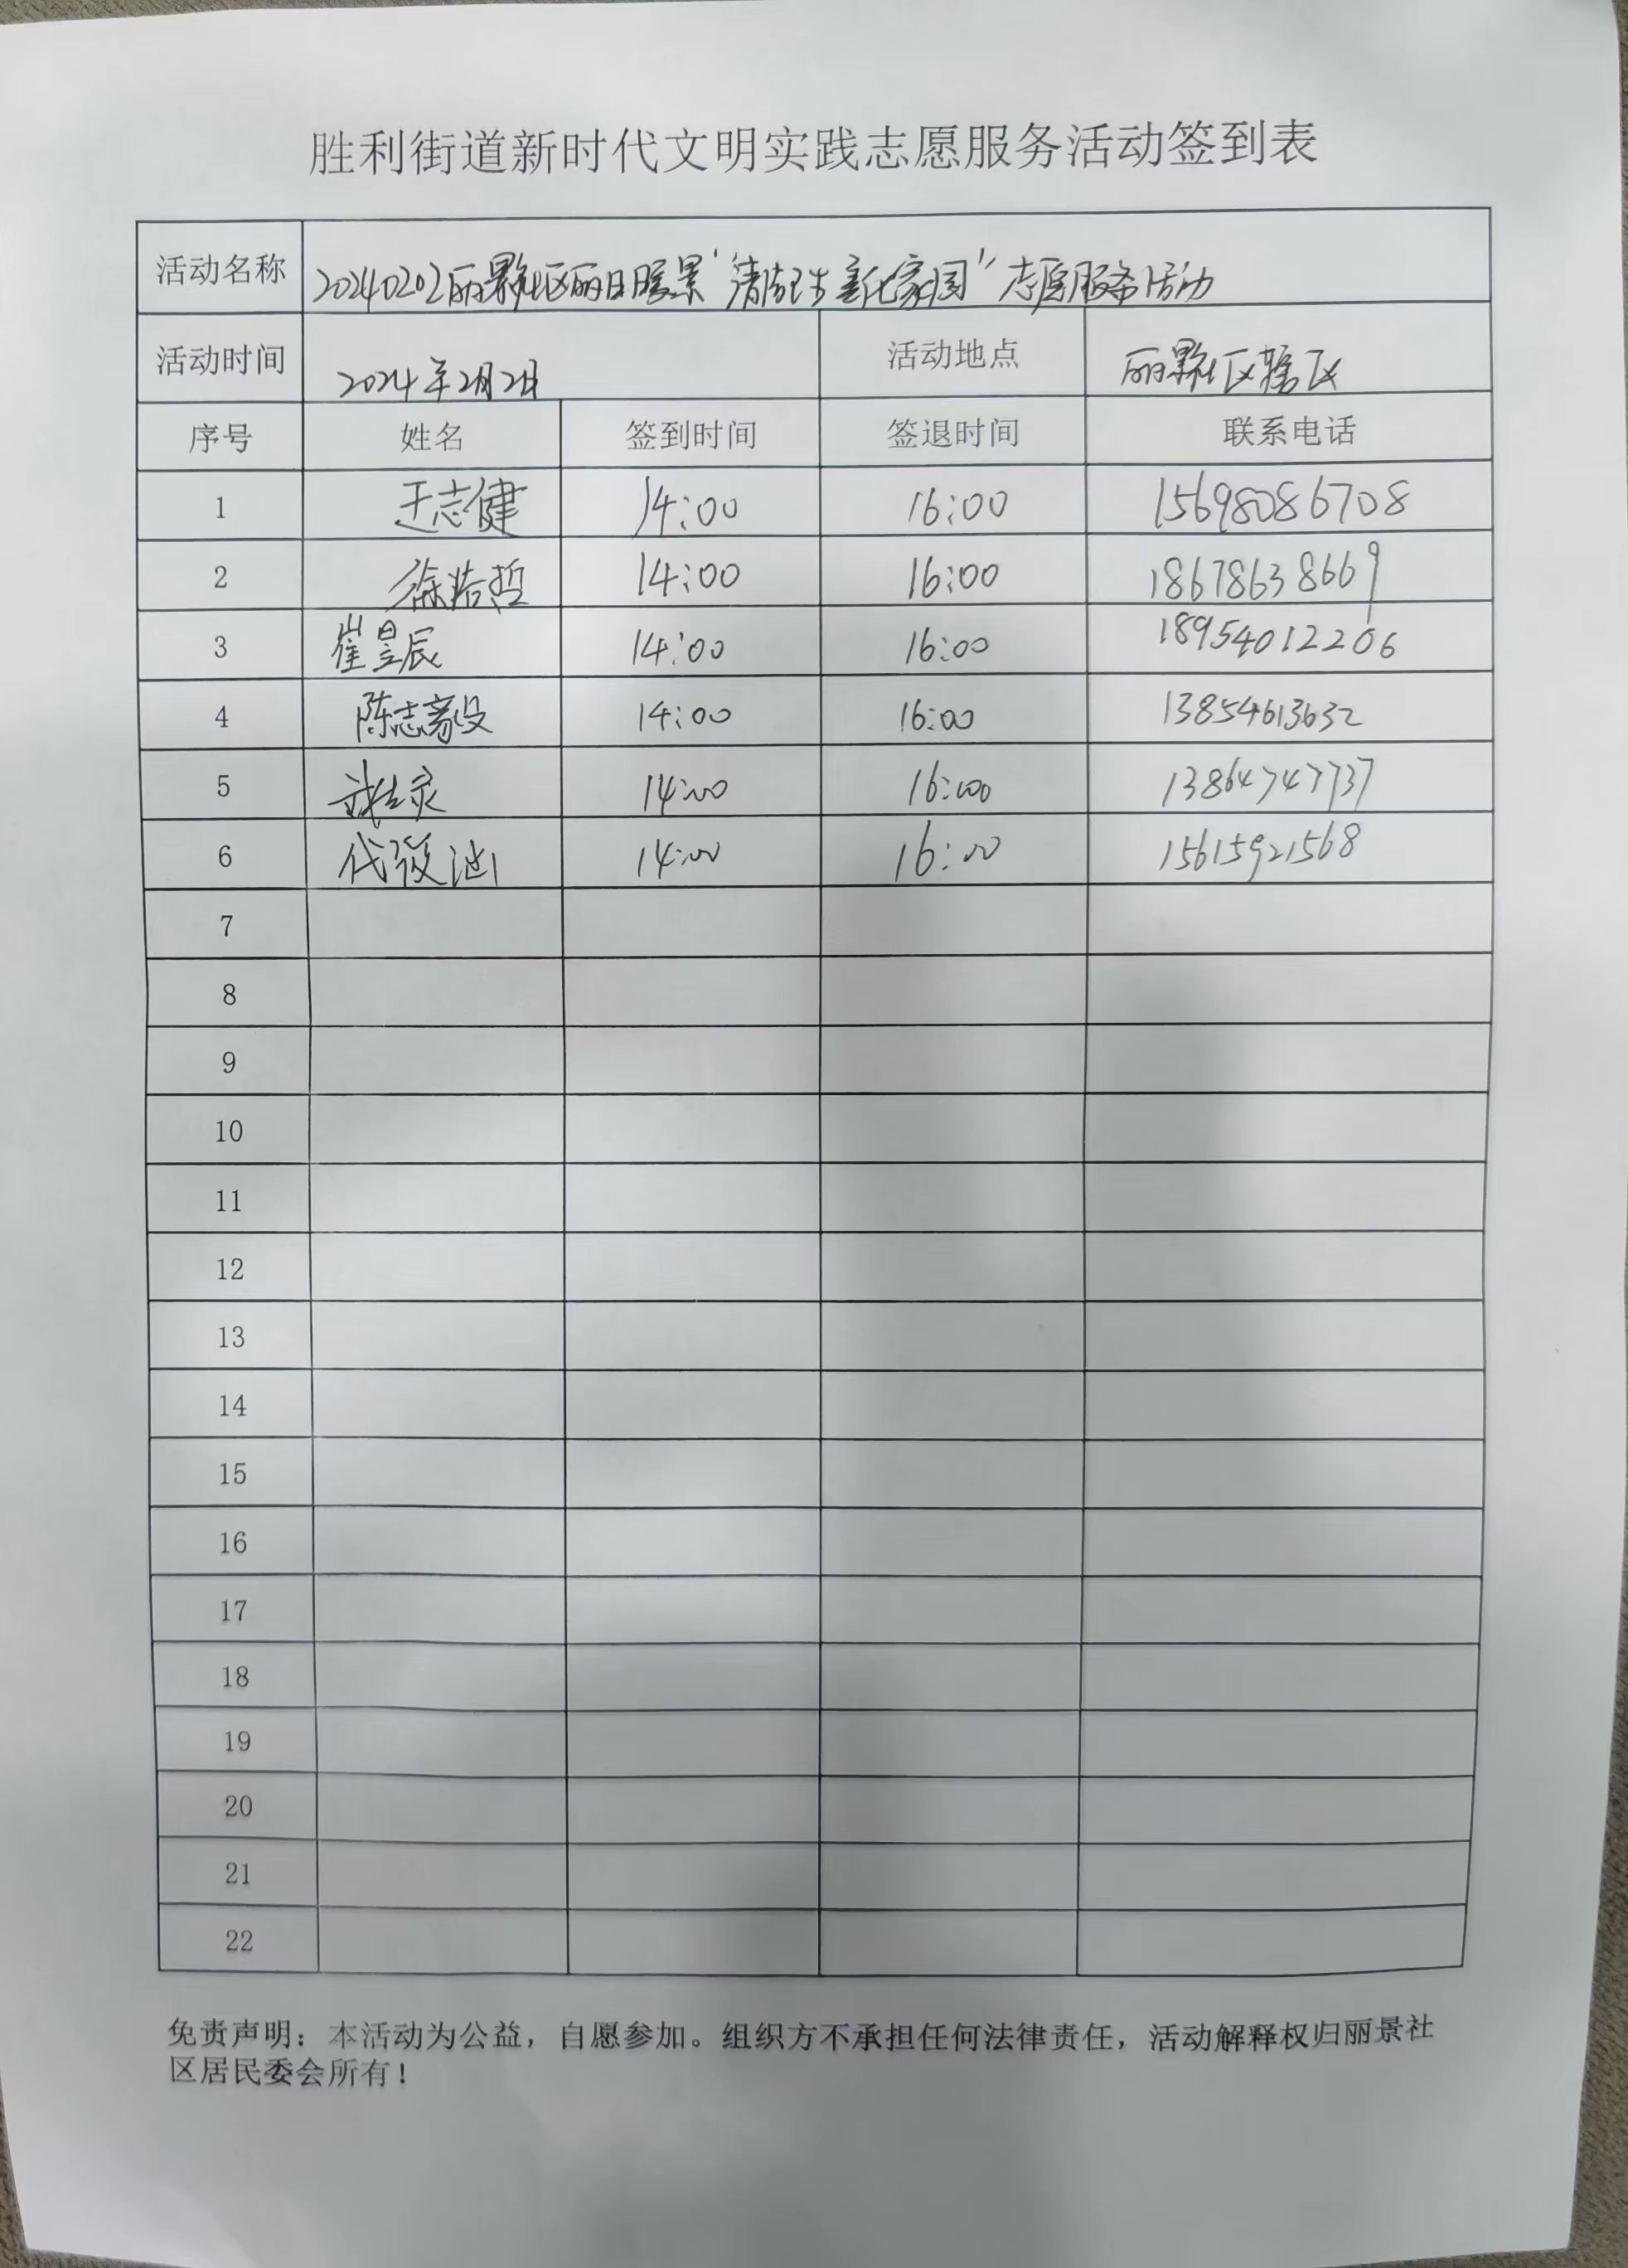 胜利街道新时代文明实践志愿服务活动签到表
活动名称 20240202丽景社区丽日暖景“清洁环境 美化家园”志愿服务活动
活动时间 2024年2月2日 活动地点 丽景社区辖区
序号 姓名 签到时间 签退时间 联系电话
1 王志健 14:00 16:00 15698086708
2 徐浩哲 14:00 16:00 18678638669
3 崔昱辰 14:00 16:00 18954012206
4 陈志毅 14:00 16:00 13854613632
5 14:00 16:00 13864747737
6 14:00 16:00 15615921568
7
8
9
10
11
12
13
14
15
16
17
18
19
20
21
22
免责声明：本活动为公益，自愿参加。组织方不承担任何法律责任，活动解释权归丽景社
区居民委会所有！